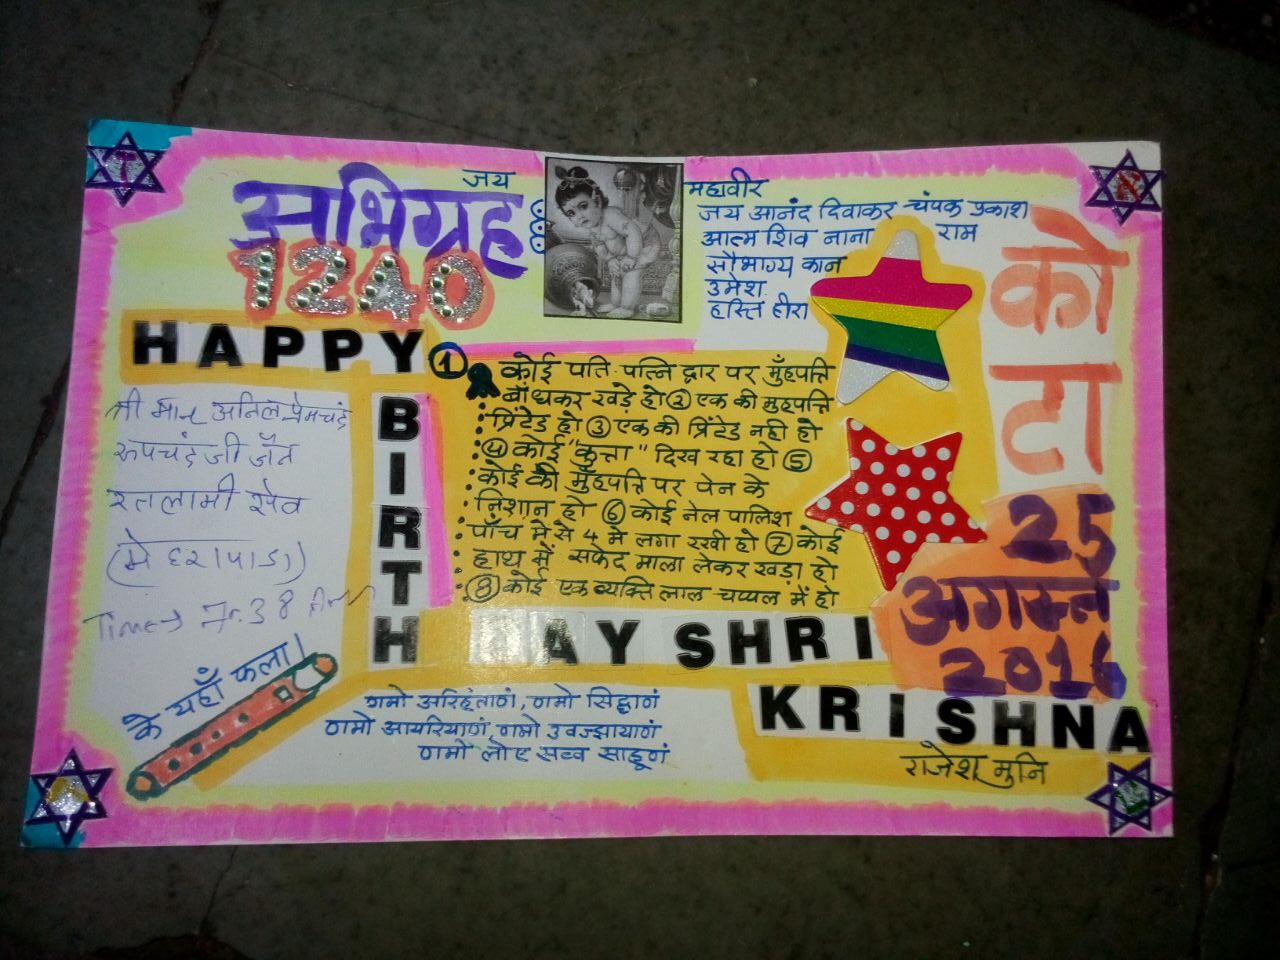 जय
महावीर
अभिग्रह
1240
जय आनंद दिवाकर चंपक प्रकाश
आत्म शिव नाना राम
सौभाग्य कान
उमेश
हस्ति हीरा
को
टा
HAPPY
BIRTH
DAY SHRI
KRISHNA
① कोई पति-पत्नि द्वार पर मुँहपत्ति
बाँधकर खड़े हो ② एक की मुहपत्ति
प्रिंटेड हो ③ एक की प्रिंटेड नही हो
④ कोई "कुत्ता" दिख रहा हो ⑤
कोई की मुँहपत्ति पर पेन के
निशान हो ⑥ कोई नेल पालिश
पाँच मे से 4 मे लगा रखी हो ⑦ कोई
हाथ में सफेद माला लेकर खड़ा हो
⑧ कोई एक व्यक्ति लाल चप्पल में हो
25
अगस्त
2016
अनिल प्रेमचंद
रूपचंद जी जैन
रतलामी सेव
Time → 7.38
के यहाँ फला।
णमो अरिहंताणं, णमो सिद्धाणं
णमो आयरियाणं, णमो उवज्झायाणं
णमो लोए सव्व साहूणं
राजेश मुनि